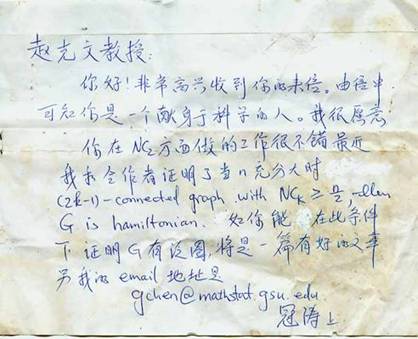 赵克文教授:
你好!非常高兴收到你的来信。由信中
可知你是一个献身于科学的人。我很愿意
你在NC2方面做的工作很不错 最近
我和合作者证明了当n充分大时
(2k-1)-connected graph with NCk ≥ n/2, then
G is hamiltonian. 如你能在此条件
下证明G有泛圈,将是一篇有好的文章
另我的email地址是
gchen@mathstat.gsu.edu.
冠涛上